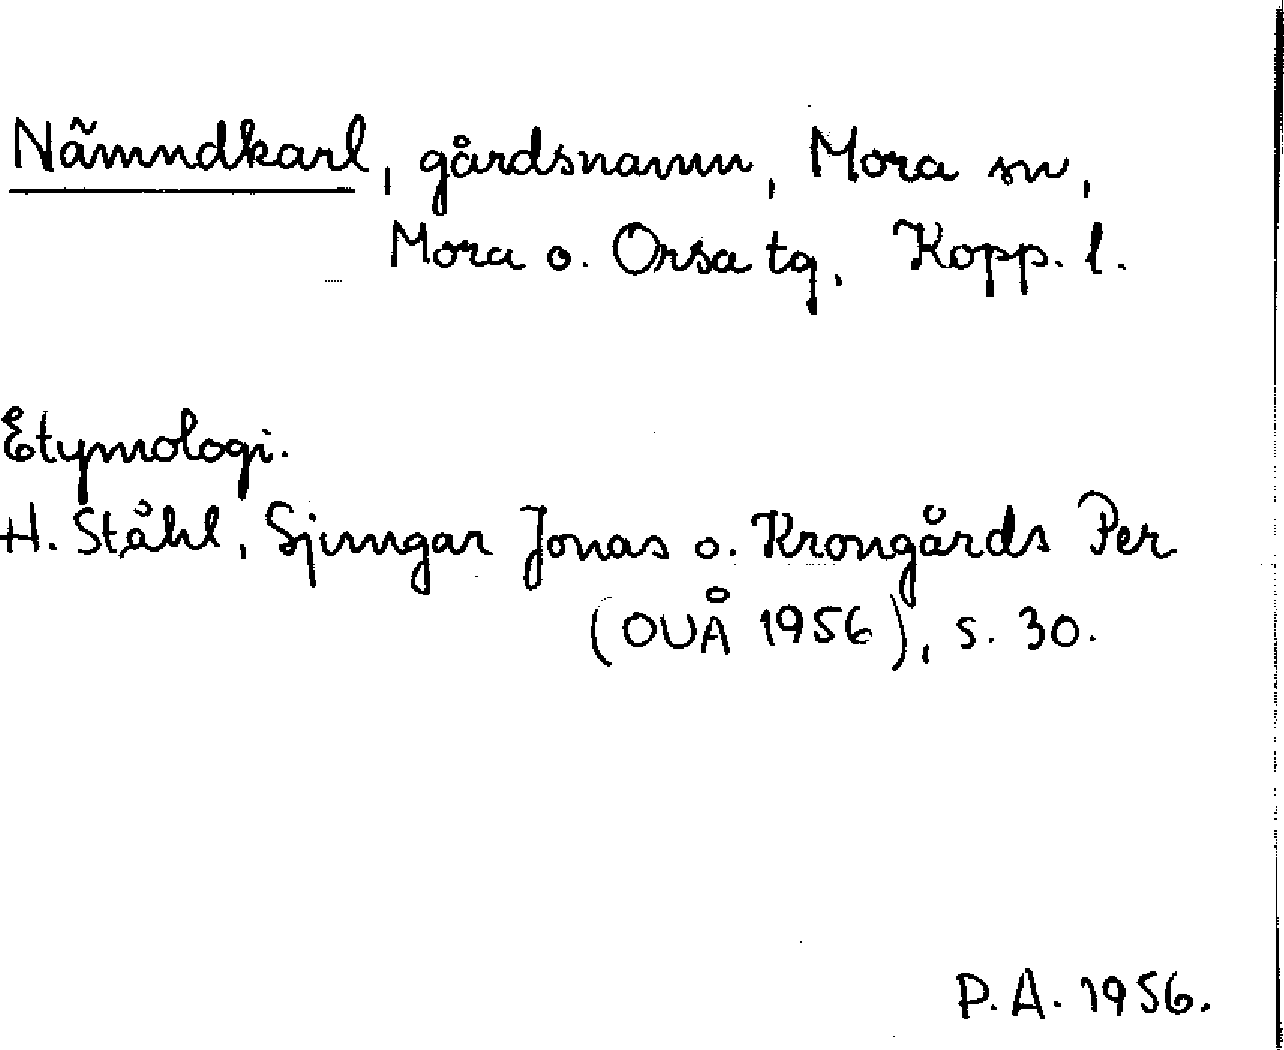 Nämndkarl, gårdsnamn, Mora sn,
Mora o. Orsa tg, Kopp. l.
Etymologi.
H. Ståhl, Sjungar Jonas o. Krongårds Per
(OUÅ 1956), s. 30.
P.A. 1956.